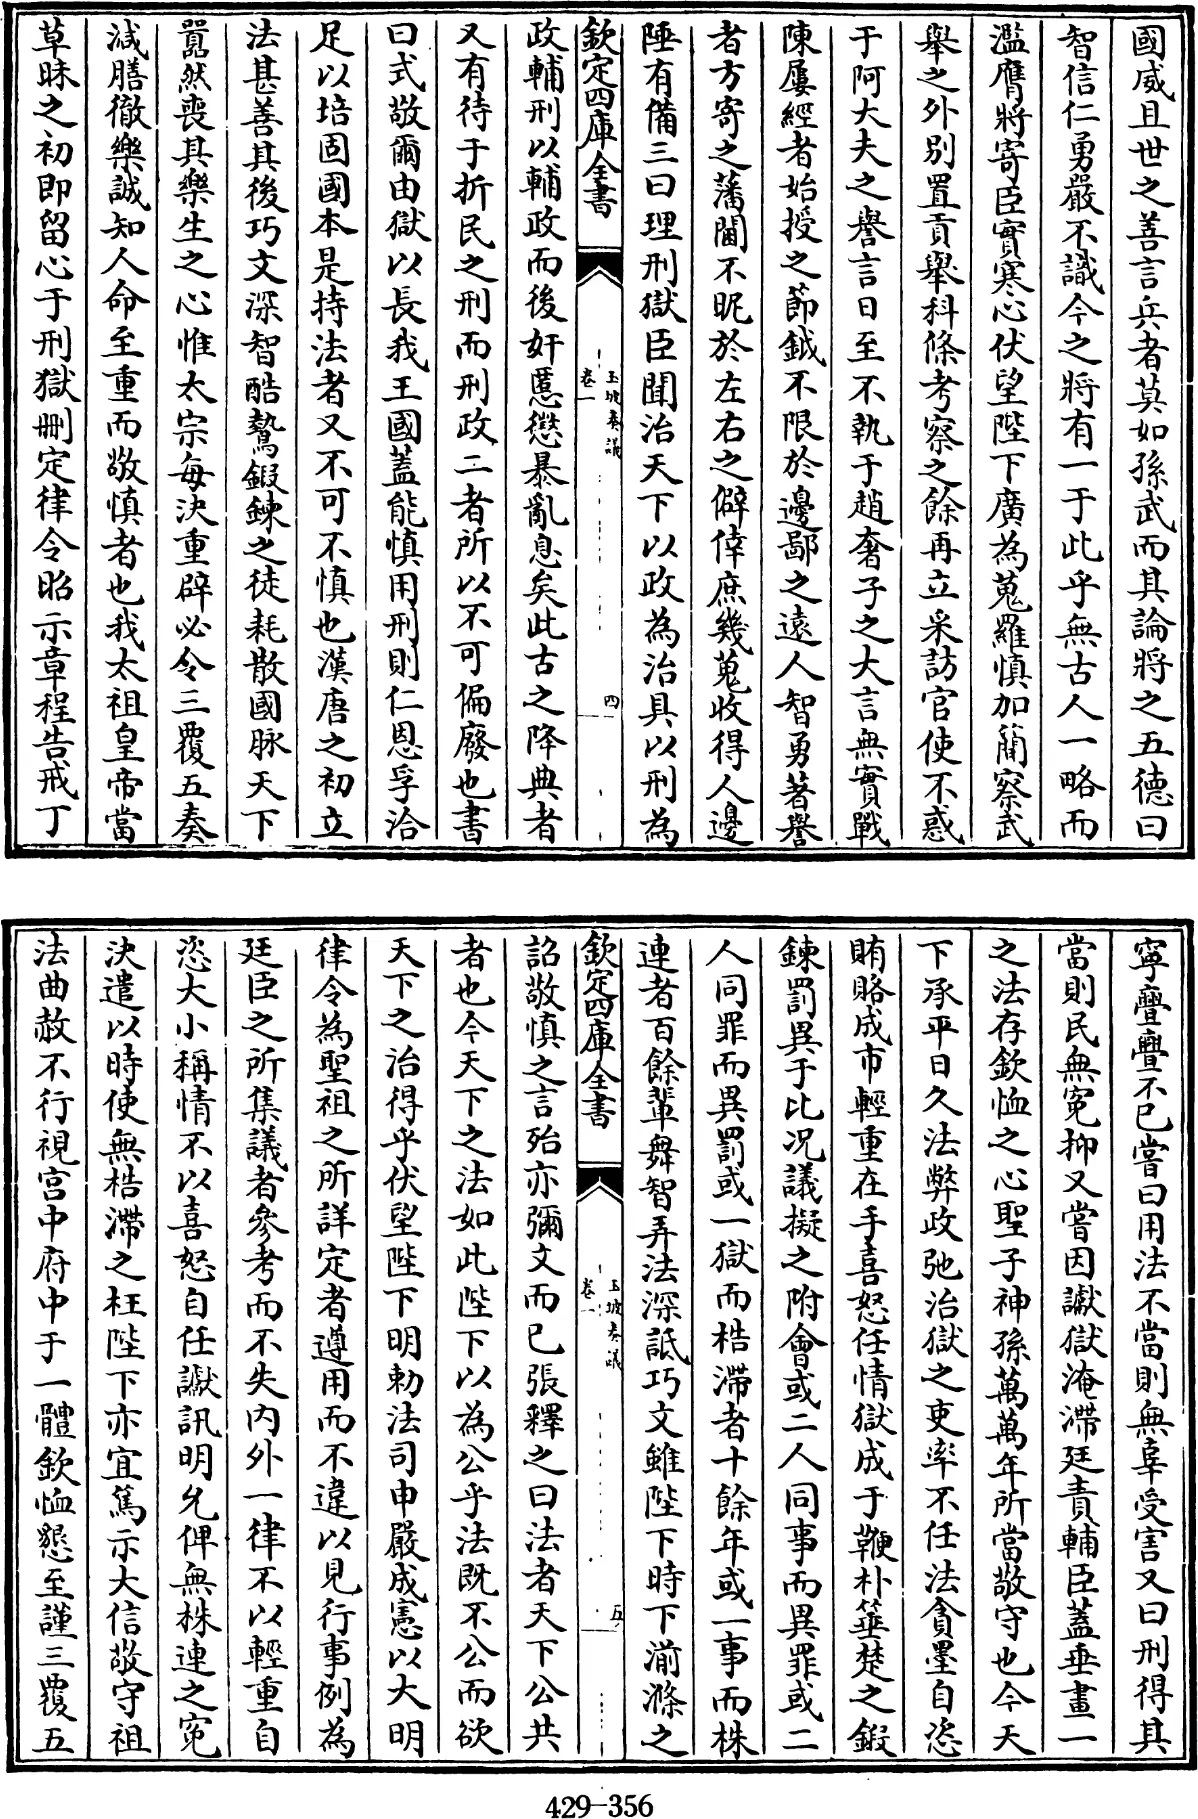 國威且世之善言兵者莫如孫武而其論將之五德曰
智信仁勇嚴不識今之將有一于此乎無古人一略而
濫膺將寄臣實寒心伏望陛下廣為蒐羅慎加簡察武
舉之外别置貢舉科條考察之餘再立采訪官使不惑
于阿大夫之譽言日至不執于趙奢子之大言無實戰
陳屢經者始授之節鉞不限於邊鄙之遠人智勇著譽
者方寄之藩閫不昵於左右之僻倖庶幾蒐收得人邊
陲有備三曰理刑獄臣聞治天下以政為治具以刑為
欽定四庫全書
玉坡奏議
卷一
四
政輔刑以輔政而後奸慝懲暴亂息矣此古之降典者
又有待于折民之刑而刑政二者所以不可偏廢也書
曰式敬爾由獄以長我王國蓋能慎用刑則仁恩孚洽
足以培固國本是持法者又不可不慎也漢唐之初立
法甚善其後巧文深智酷鷙鍜鍊之徒耗散國脉天下
囂然喪其樂生之心惟太宗每决重辟必令三覆五奏
減膳徹樂誠知人命至重而敬慎者也我太祖皇帝當
草昧之初即留心于刑獄刪定律令昭示章程告戒丁
寧亹亹不已嘗曰用法不當則無辜受害又曰刑得其
當則民無寃抑又嘗因讞獄淹滯廷責輔臣蓋垂畫一
之法存欽恤之心聖子神孫萬萬年所當敬守也今天
下承平日久法弊政弛治獄之吏率不任法貪墨自恣
賄賂成市輕重在手喜怒任情獄成于鞭朴箠楚之鍜
鍊罰異于比况議擬之附會或二人同事而異罪或二
人同罪而異罰或一獄而梏滯者十餘年或一事而株
連者百餘輩舞智弄法深詆巧文雖陛下時下湔滌之
欽定四庫全書
玉坡奏議
卷一
五
詔敬慎之言殆亦彌文而已張釋之曰法者天下公共
者也今天下之法如此陛下以為公乎法既不公而欲
天下之治得乎伏望陛下明勅法司申嚴成憲以大明
律令為聖祖之所詳定者遵用而不違以見行事例為
廷臣之所集議者參考而不失内外一律不以輕重自
恣大小稱情不以喜怒自任讞訊明允俾無株連之寃
決遣以時使無梏滯之枉陛下亦宜篤示大信敬守祖
法曲赦不行視宫中府中于一體欽恤懇至謹三覆五
429-356